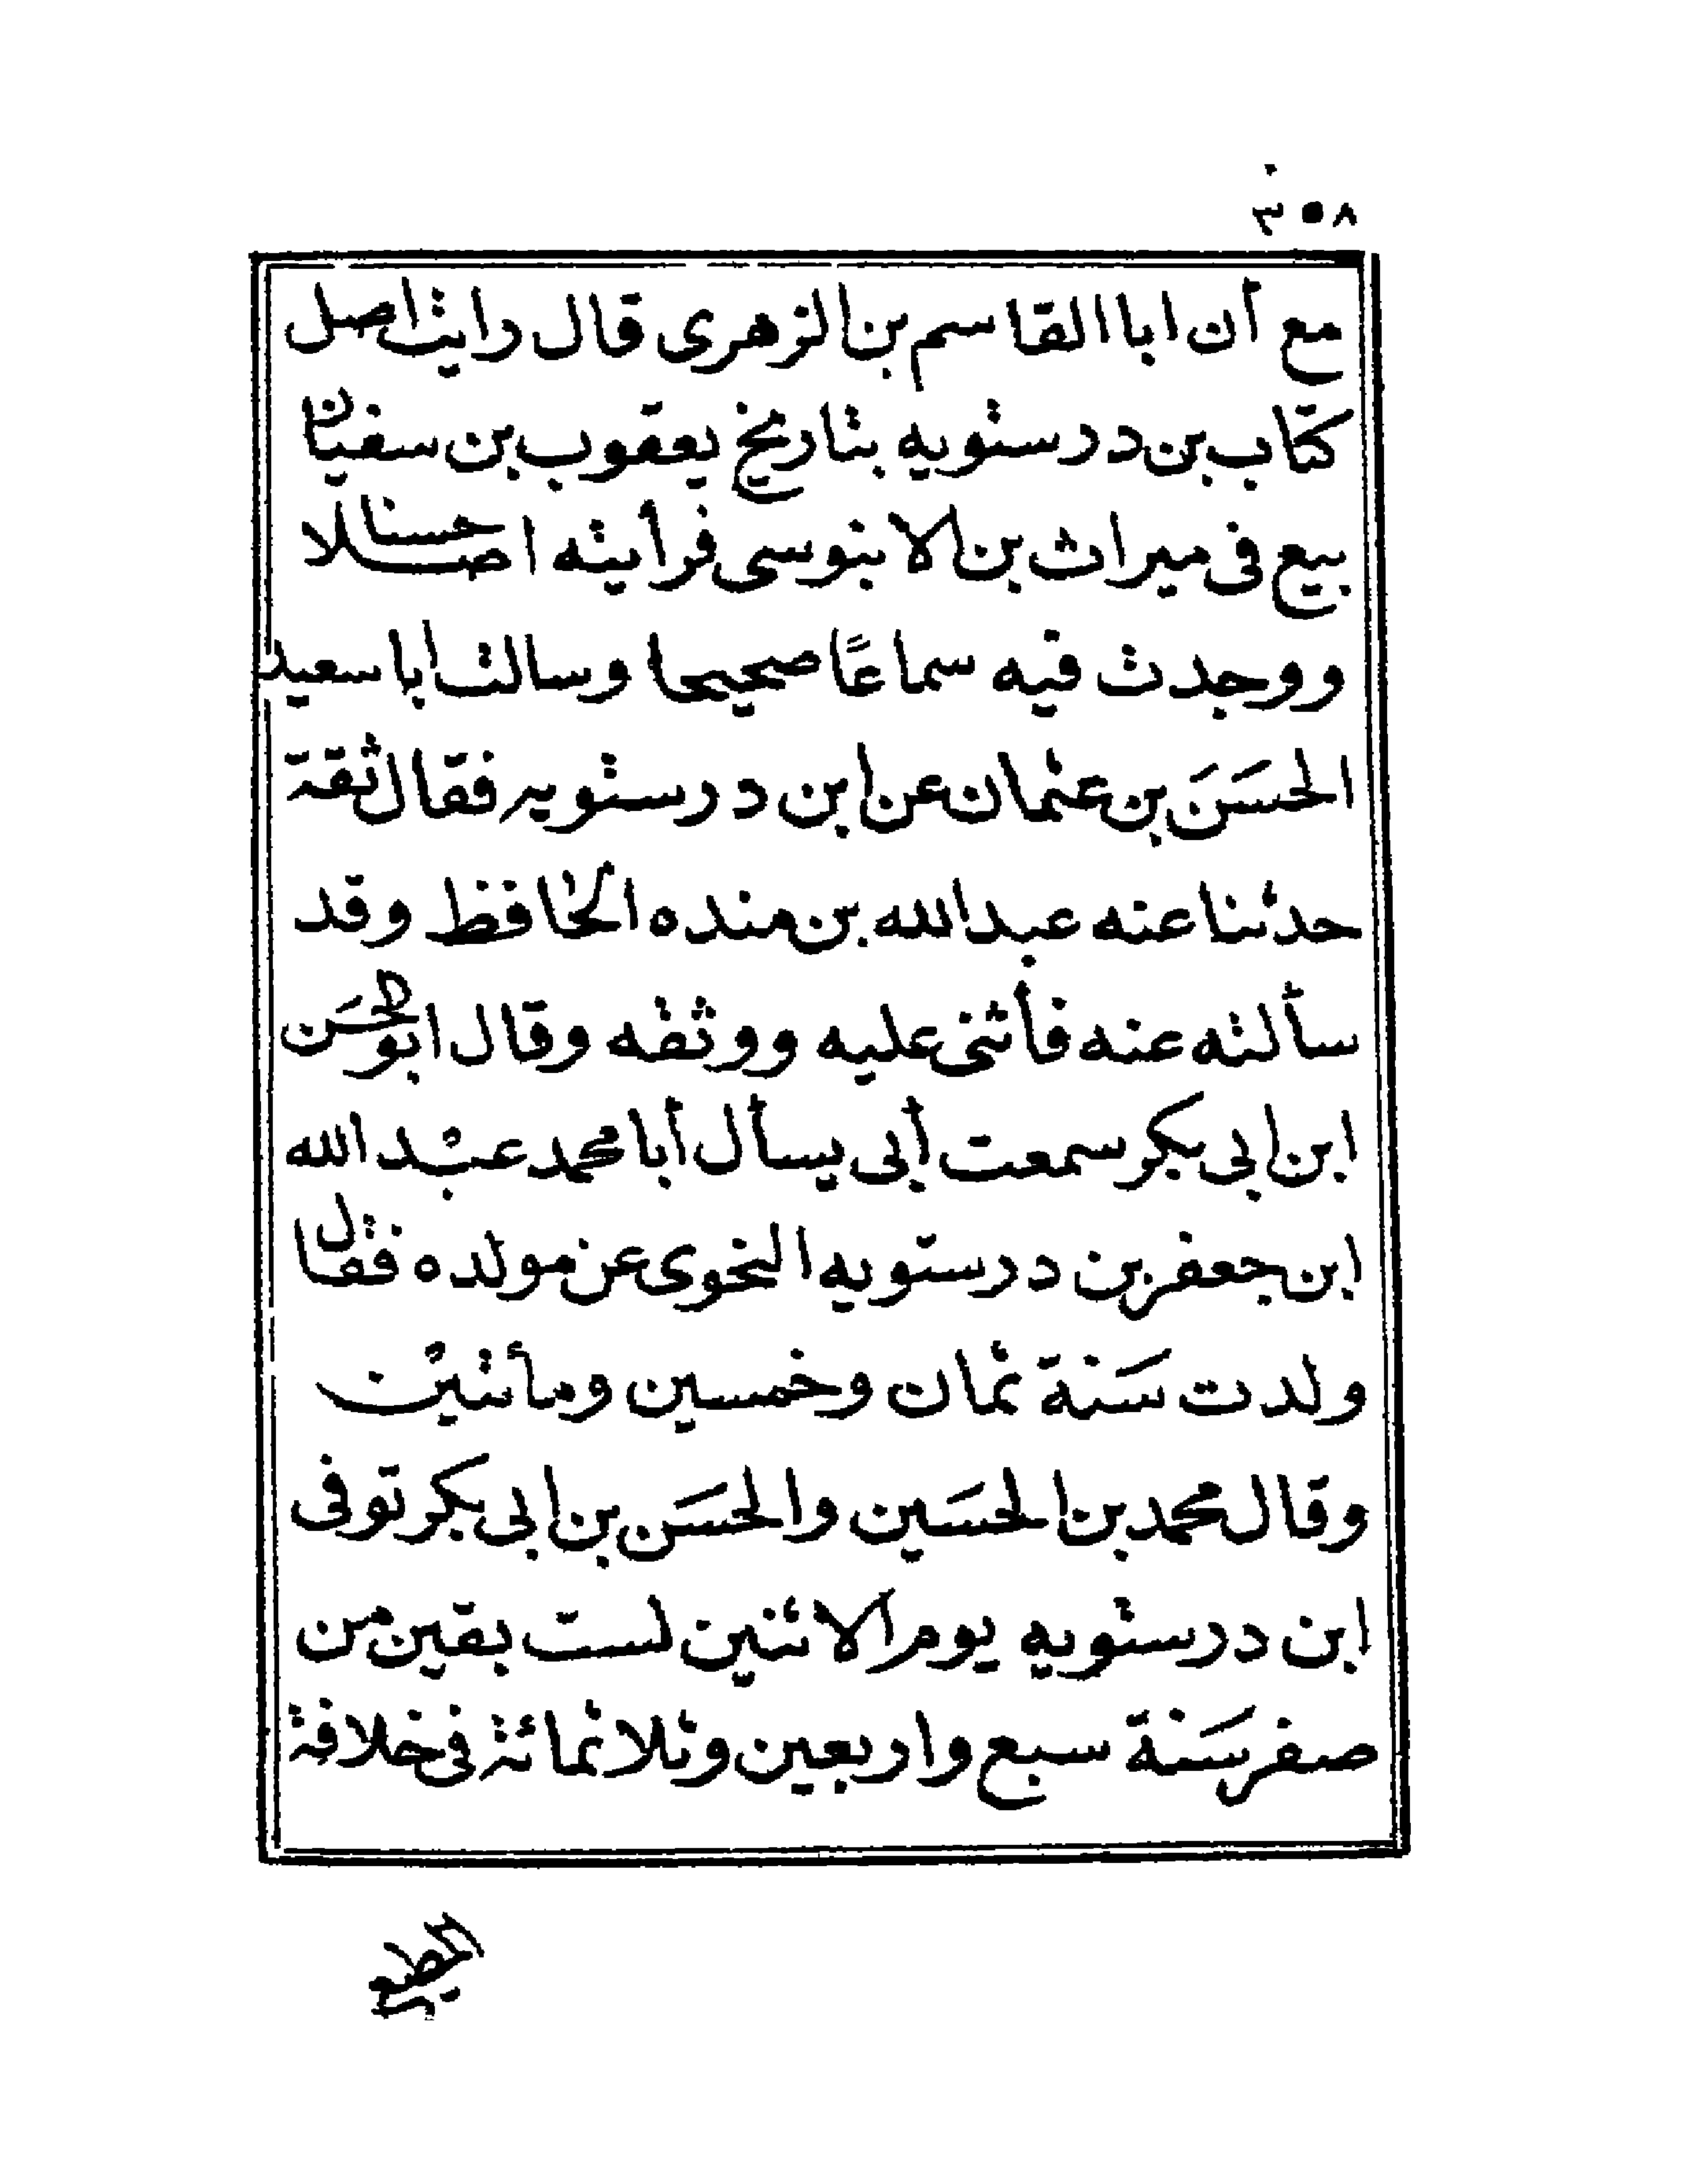 ٣٥٨
مع أن ابا القاسم بن الزهرى قال رايت اصل
كتاب بن درستويه بتاريخ يعقوب بن سفيان
بيع فى ميراث بن الابنوسى فرأيته اصلا حسنا
ووجدت فيه سماعًا صحيحا وسالت ابا سعيد
الحسَنَ بن عثمان عن ابن درستويه فقال ثقة
حدثنا عنه عبد الله بن منده الحافظ وقد
سألته عنه فأثنى عليه ووثقه وقال ابو الحسَن
ابن ابى بكر سمعت أبى يسأل أبا محمد عبد الله
ابن جعفر بن درستويه النحوى عن مولده فقال
ولدت سَنة ثمان وخمسين ومأتين
وقال محمد بن الحسَين والحسَن بن ابى بكر توفى
ابن درستويه يوم الاثنين لست بقين من
صفر سَنة سبع واربعين وثلاثمائة فى خلافة
المطيع